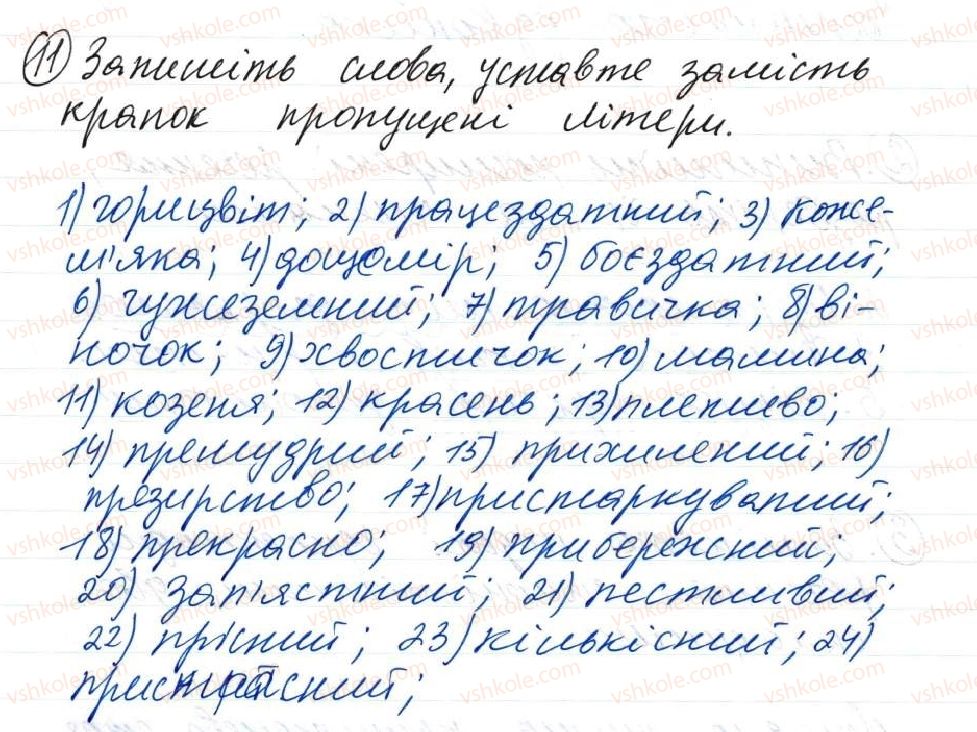 11 Запишіть слова, уставте замість
крапок пропущені літери.
1) горицвіт; 2) працездатний; 3) коже-
м'яка; 4) дощомір; 5) боєздатний;
6) чужеземний; 7) травичка; 8) ві-
ночок; 9) хвостичок; 10) мамина;
11) козеня; 12) красень; 13) плетиво;
14) премудрий; 15) прихилений; 16)
презирство; 17) пристаркуватий;
18) прекрасно; 19) прибережний;
20) зап'ястний; 21) пестливий;
22) прісний; 23) кількісний; 24)
пристрасний;